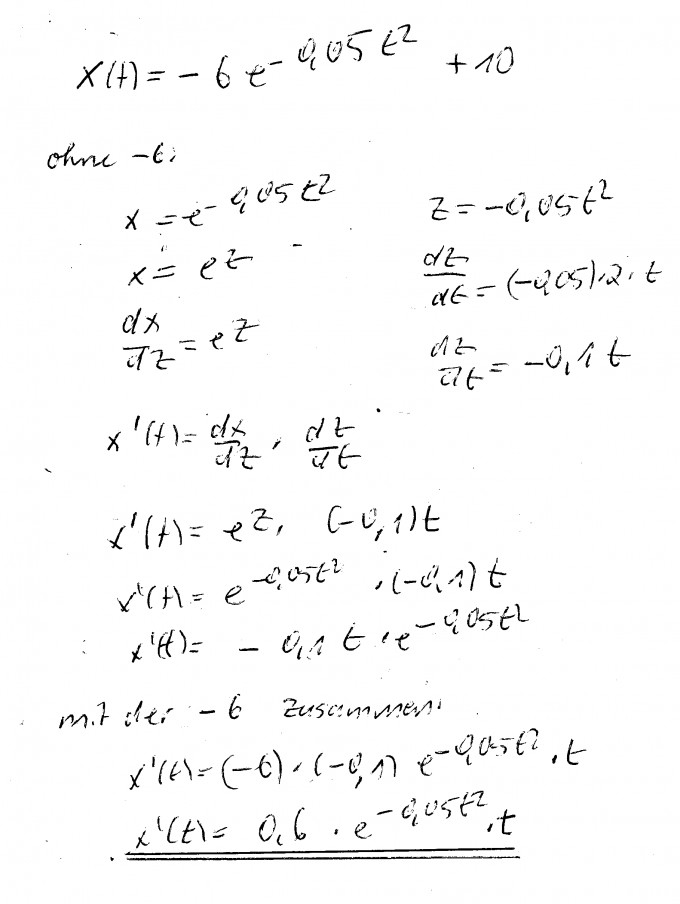 x(t) = - 6 e^{- 0,05 t^2} + 10
ohne -6:
x = e^{- 0,05 t^2}
z = -0,05 t^2
x = e^z
dz/dt = (-0,05)·2·t
dx/dz = e^z
dz/dt = -0,1 t
x'(t) = dx/dz · dz/dt
x'(t) = e^z · (-0,1) t
x'(t) = e^{-0,05 t^2} · (-0,1) t
x'(t) = - 0,1 t · e^{-0,05 t^2}
mit der -6 zusammen:
x'(t) = (-6) · (-0,1) e^{-0,05 t^2} · t
x'(t) = 0,6 · e^{-0,05 t^2} · t